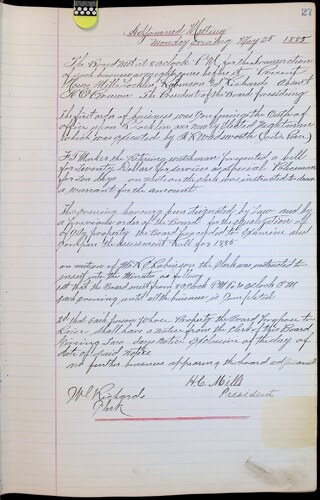 27
Adjourned Meeting
Monday Evening May 25 1885
The Board met at 8 oclock P.M. for the transaction
of such business as might come before it Present
Mills, Locklin, Robinson, and Richards Absent
The President of the Board presiding
The first order of business was Conferring the Oath of
office upon Locklin as newly elected Nightman
which was officiated by H.K. Wadsworth
the Retiring watchman presented a bill
for Seventy Dollars for services as Special Policeman
for days on which the clerk was instructed to draw
a warrant for the amount
This evening having been designated by Law and by
a previous order of the Board for the equalization
of City property the Board proceeded to Examine and
the assessment Roll for 1885
on motion of Mr Robinson the Clerk was instructed to
insert into the Minutes as follows
1st that the Board meet from 8 oclock PM to 10 oclock P.M
each evening until all the business is Completed
2d that Each person whose Property the Board Propose to
Raise, shall have a notice from the Clerk of this Board,
two days notice exclusive of the day of
date of said notice
no further business appearing the board adjourned
H.C. Mills
President
W.C. Richards
Clerk